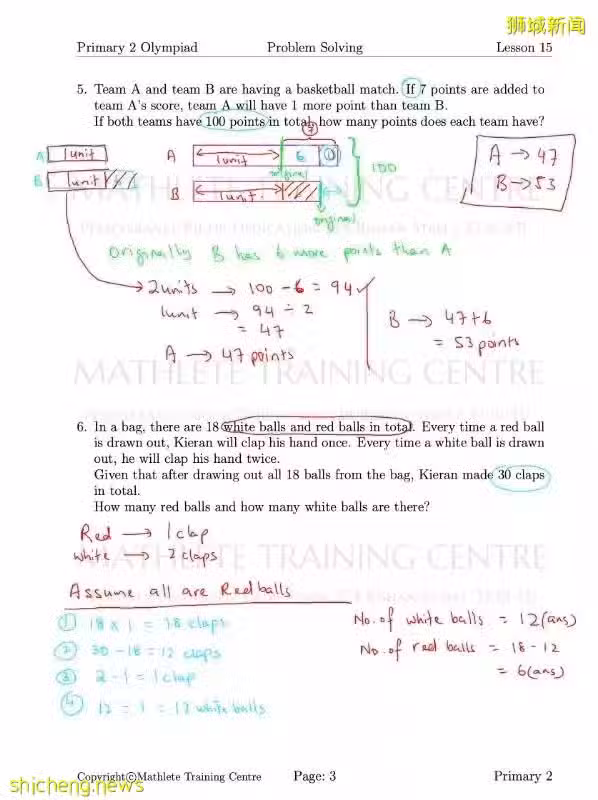 狮城新闻
Primary 2 Olympiad Problem Solving Lesson 15
5. Team A and team B are having a basketball match. If 7 points are added to
team A's score, team A will have 1 more point than team B.
If both teams have 100 points in total, how many points does each team have?
7
A 1unit
B 1unit
A 1unit 6 1
original
B 1unit
original
100
A → 47
B → 53
MATHLETE TRAINING CENTRE
Originally B has 6 more points than A
→ 2units → 100 - 6 = 94 ✓
1unit → 94 ÷ 2
= 47
A → 47 points
B → 47+6
= 53 points
MATHLETE TRAINING CENTRE
6. In a bag, there are 18 white balls and red balls in total. Every time a red ball
is drawn out, Kieran will clap his hand once. Every time a white ball is drawn
out, he will clap his hand twice.
Given that after drawing out all 18 balls from the bag, Kieran made 30 claps
in total.
How many red balls and how many white balls are there?
Red → 1 clap
White → 2 claps
MATHLETE TRAINING CENTRE
Assume all are Red balls
① 18 × 1 = 18 claps
② 30 - 18 = 12 claps
③ 2 - 1 = 1 clap
④ 12 ÷ 1 = 12 white balls
No. of white balls = 12 (ans)
No. of red balls = 18 - 12
= 6 (ans)
Copyright©Mathlete Training Centre Page: 3 Primary 2
shicheng.news